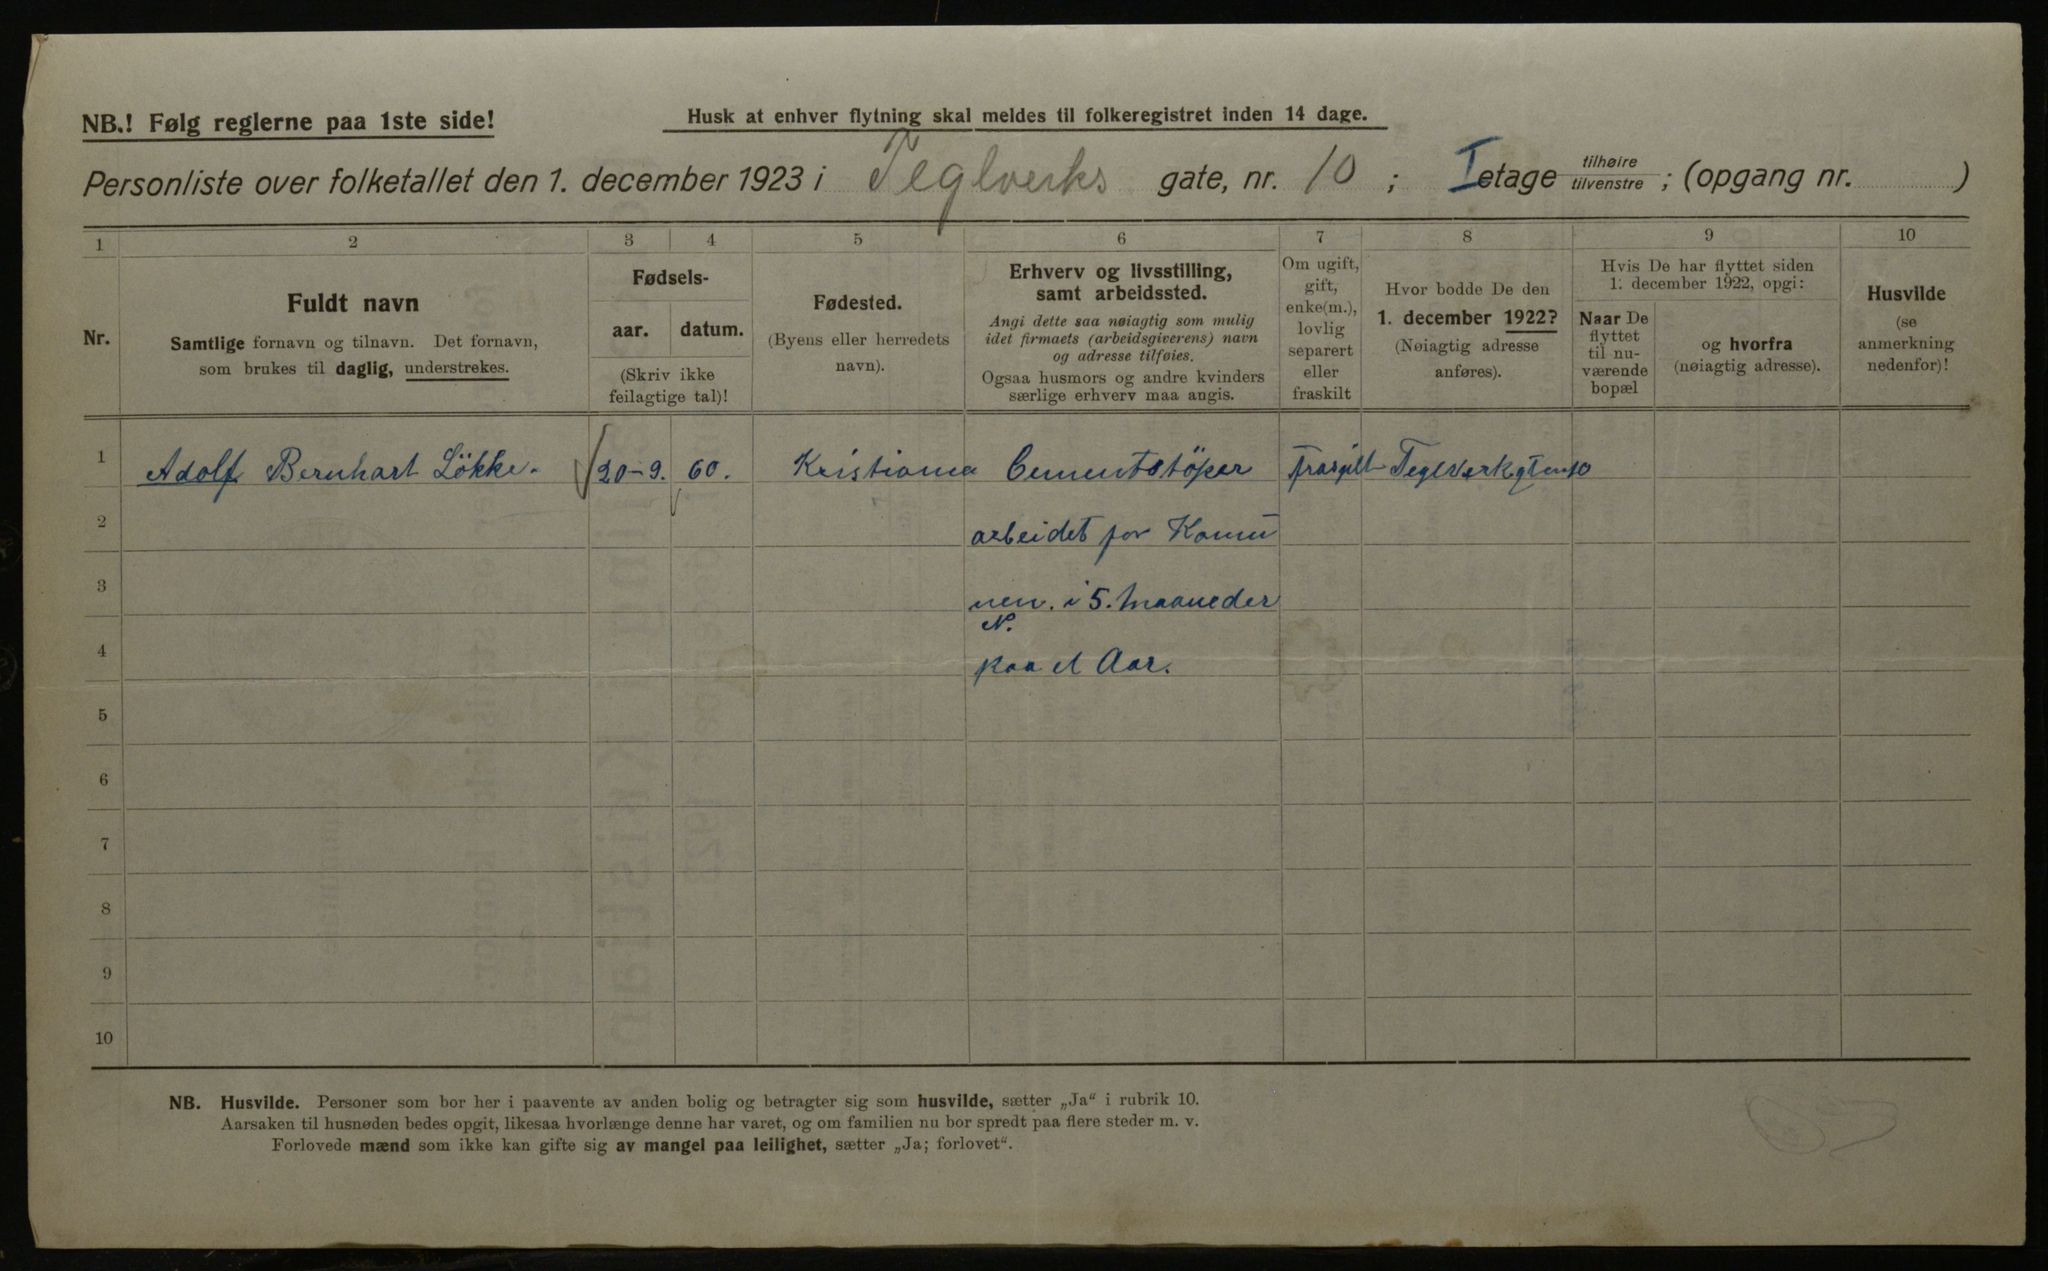 NB.! Følg reglerne paa 1ste side!
Husk at enhver flytning skal meldes til folkeregistret inden 14 dage.
Personliste over folketallet den 1. december 1923 i Teglverks gate, nr. 10 ; I etage tilhøire tilvenstre ; (opgang nr. )
1 2 3 4 5 6 7 8 9 10
Nr.
Fuldt navn
Samtlige fornavn og tilnavn. Det fornavn,
som brukes til daglig, understrekes.
Fødsels-
aar. datum.
(Skriv ikke
feilagtige tal)!
Fødested.
(Byens eller herredets
navn).
Erhverv og livsstilling,
samt arbeidssted.
Angi dette saa nøiagtig som mulig
idet firmaets (arbeidsgiverens) navn
og adresse tilføies.
Ogsaa husmors og andre kvinders
særlige erhverv maa angis.
Om ugift,
gift,
enke(m.),
lovlig
separert
eller
fraskilt
Hvor bodde De den
1. december 1922?
(Nøiagtig adresse
anføres).
Hvis De har flyttet siden
1. december 1922, opgi:
Naar De
flyttet
til nu-
værende
bopæl
og hvorfra
(nøiagtig adresse).
Husvilde
(se
anmerkning
nedenfor)!
1 Adolf Bernhart Lökke. 20-9. 60. Kristiania Cementstöper
2 arbeidet for Komu
3 nen. i 5. Maaneder
N.
4 paa et Aar.
5
6
7
8
9
10
NB. Husvilde. Personer som bor her i paavente av anden bolig og betragter sig som husvilde, sætter „Ja" i rubrik 10.
Aarsaken til husnøden bedes opgit, likesaa hvorlænge denne har varet, og om familien nu bor spredt paa flere steder m. v.
Forlovede mænd som ikke kan gifte sig av mangel paa leilighet, sætter „Ja; forlovet".